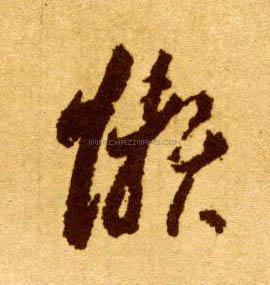 懶
WWW.CHAZIWANG.COM